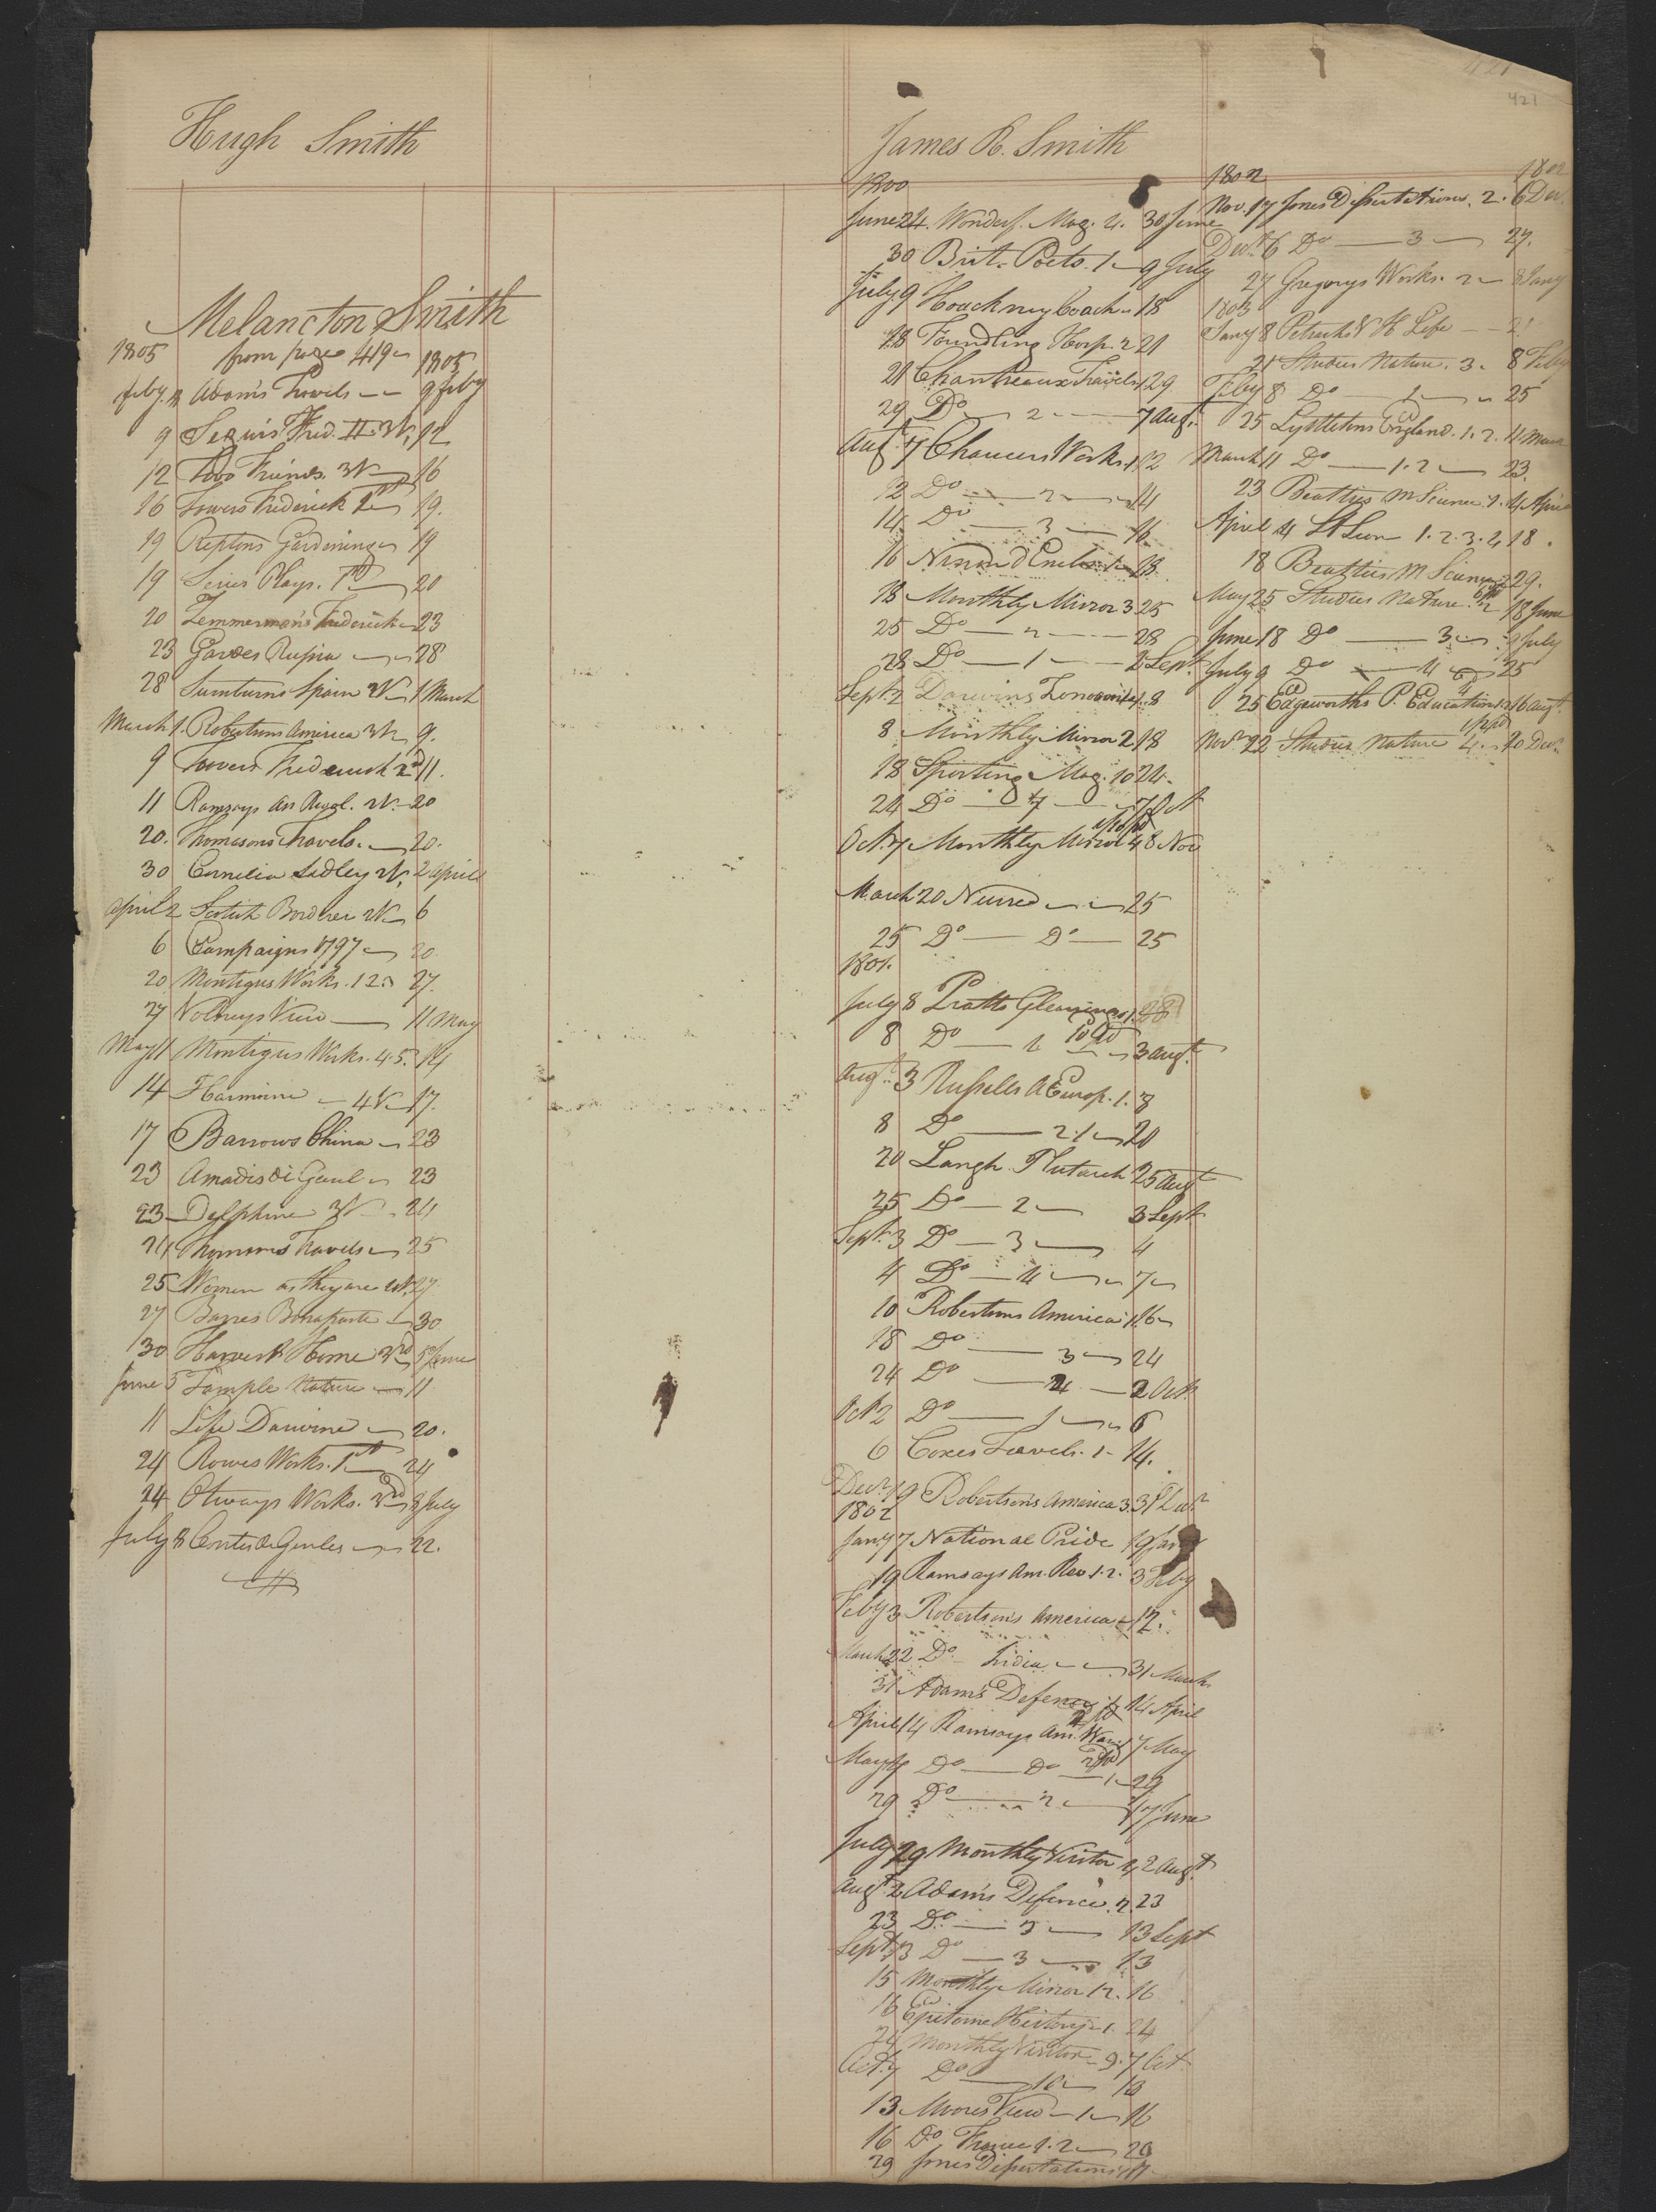 421
421
Hugh Smith
Melancton Smith
1805 from page 419 1805
Feby. Adams Travels 9 Feby
9 Segurs Fred. II. 3V, 12
12 Two Friends. 3V 16
16 Towers Frederick 1st 19.
19 Reptons Gardening 19
19 Plays. 1st 20
20 Zemmerman's Frederick 23
23 Russia 28
28 Spain 2V 1 March
March 1. Robertsons America 3V 9.
9 Towers Frederick 2d 11.
11 Ramsays An Angl. 2V. 20
20. Thomsons Travels. 20.
30 Cornelia Sedley 2V, 2 April
April 2 Scotish Border 2V 6
6 Campaigns 1797 20.
20 Montigus Works. 1 2. 27.
27 Volneys View 11 May
May 11 Montigus Works. 4.5. 14
14 Harmoine 4V 17.
17 Barrows China 23
23 Amadis de Gaul 23
23 Delphine 3V 24
24 Travels 25
25 Women as they are 2V. 27
27 Barres Bonaparte 30
30 Harvest Home 3rd 5 June
June 5 Temple Nature 11
11 Life Darwine 20.
24 Rowes Works. 1st 24
24 Otways Works. 3rd 8 July
July 8 22.
James R. Smith
1800
June 24. Wonderf. Mag. 4. 30 June
30 Brit. Poets. 1 9 July
July 9 Hackney Coach 18
18 Foundling Hosp. 2 21
21 Chantreaux Travels 1 29
29 Do 2 7 Augt.
Augt. 7 Chaucers Works. 1 12
12 Do 2 14
14. Do 3 16
16 Ninon d'Enclos 18
18 Monthly Mirror 3 25
25 Do 2 28
28 Do 1 2 Sept.
Sept. 2 Darwins Zonomia 1. 8
8 Monthly Mirror 2 18
18 Sporting Mag. 10 24.
24 Do 7 7 Oct
Oct. 7 Monthly Mirror 4 8 Nov
March 20 25
25 Do Do 25
1801.
July 8 Pratts Gleanings 1. 28
8 Do 1 3 Augt.
Augt. 3 Russells A Europ. 1. 8
8 Do 2.1 20
20 Langh. Plutarch 25 Augt
25 Do 2 3 Sept
Sept. 3 Do 3 4
4 Do 4 7
10 Robertsons America 1. 16
18 Do 3 24
24 Do 4 2 Oct.
Oct 2 Do 1 6
6 Coxes Travels. 1 14.
Decr. 19 Robertsons America 3. 31 Decr.
1802
Jany 7 National Pride 19 Jany
19 Ramsays Am. Rev 1.2. 3 Feby
Feby 3 Robertson's America 12.
March 22 Do India 31 March
31 Adams Defence 14 April
April 14 Ramsays Am. War 1 7 May
May Do Do 1 29
29 Do 2 17 June
July 29 Monthly Visitor 4 2 Augt.
Augt. 2 Adams Defence. 2. 23
23 Do. 3 13 Sept
Sept. 13 Do 3 13
15 Monthly Mirror 12. 16
16 Epitome History 1. 24
24 Monthly Visitor 9. 7 Oct.
Oct. 7 Do 10 13
13 Moores View 1 16
16 Do France 1.2 20
29 Jones Dissertations 17
1802 1802
Nov. 17 Jones Dissertations. 2. 6 Dec.
Decr. 6 Do 3 27.
27 Gregorys Works. 2 8 Jany
1803
Jany 8 Petrarchs V H Life 21
21 Studies Nature. 3. 8 Feby
Feby 8 Do 1 25
25 Lyttletons England. 1. 2. 11 March
March 11 Do 1.2 23.
23 Beatties M Science 1. 4 April
April 4 St Leon 1. 2. 3. 4 18.
18 Beatties M Science 2 29.
May 25 Studies Nature. 2 18 June
June 18 Do 3 9 July
July 9 Do 4 25
25 Edgeworths P. Education 1.2 16 Augt.
Novr 22 Studies Nature 4. 20 Decr.